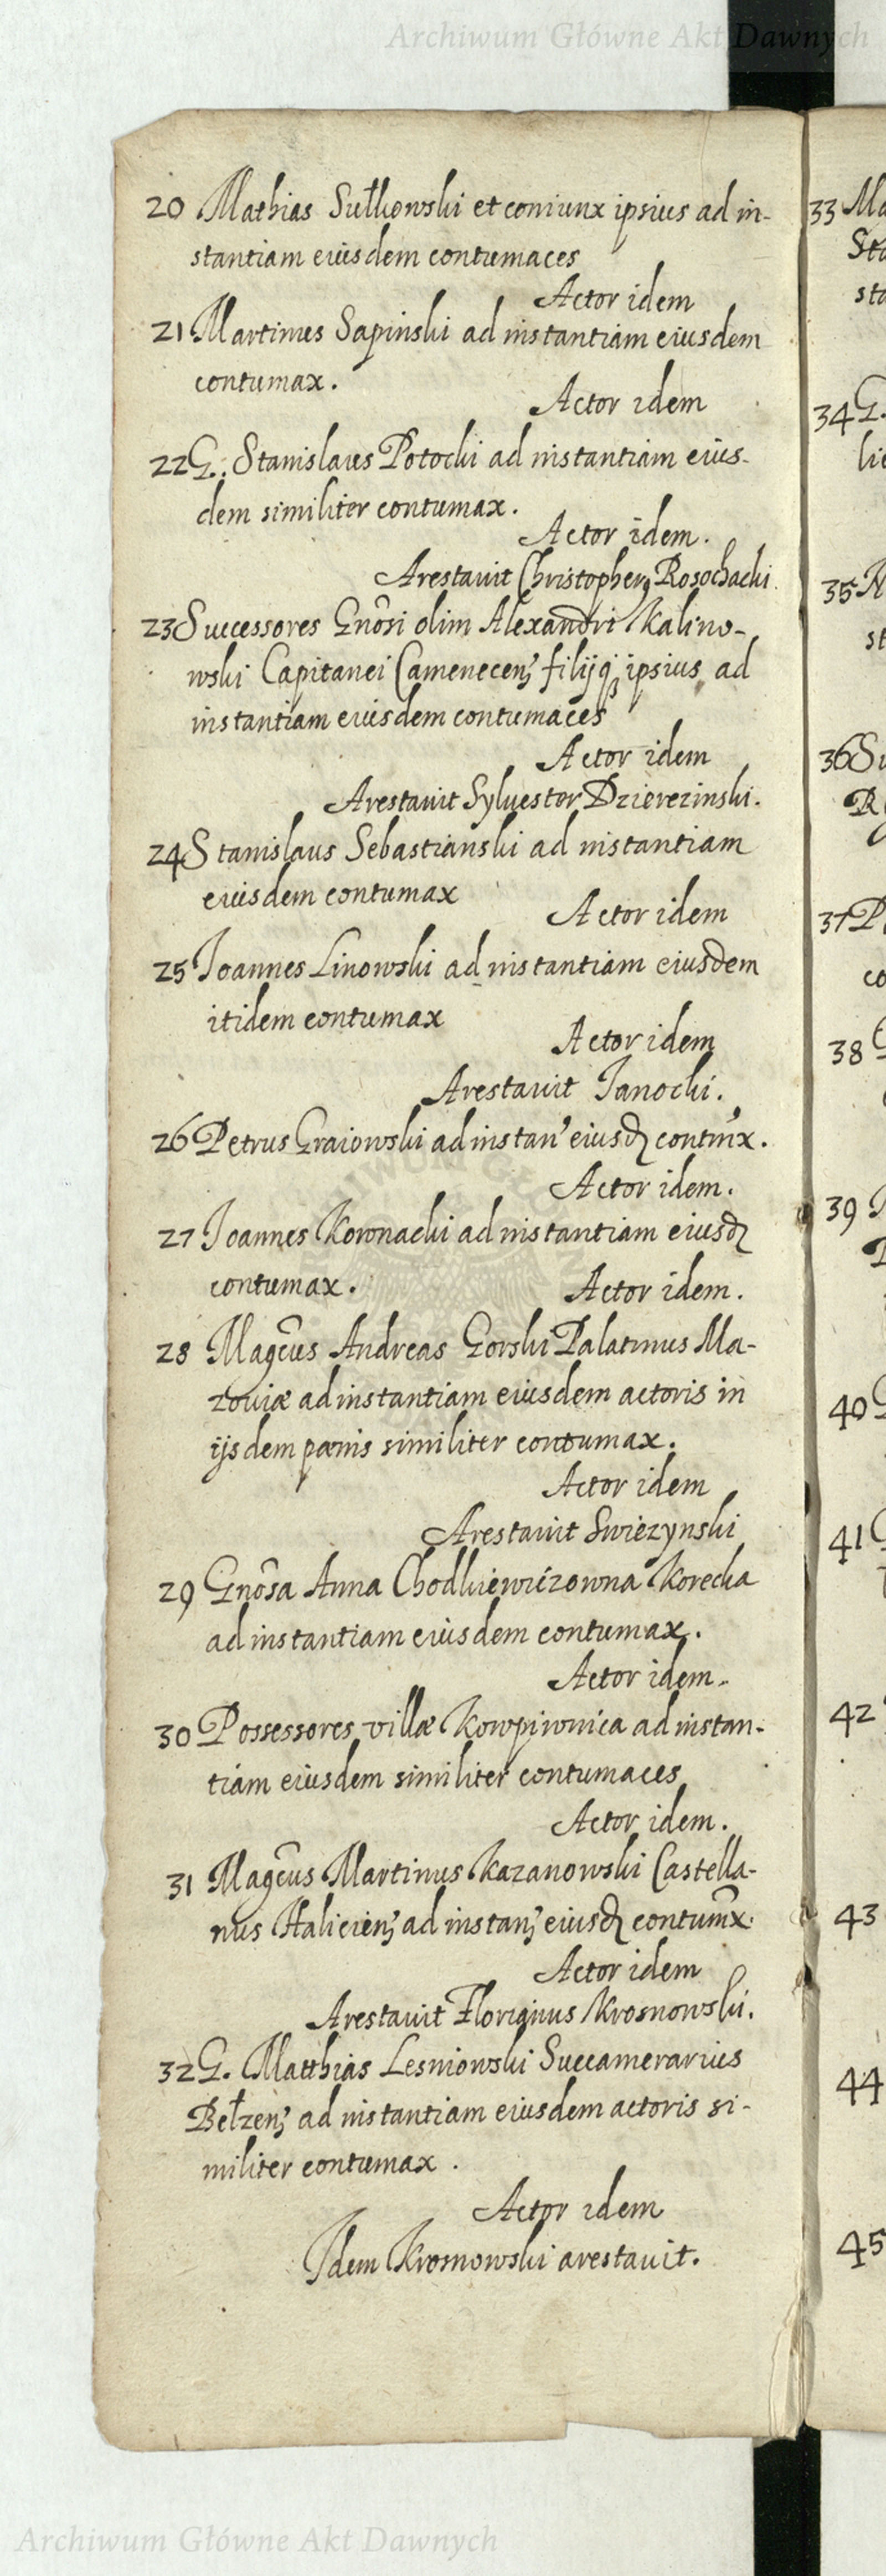 Archiwum Główne Akt Dawnych
20 Mathias Sułkowski et coniunx ipsius ad in-
stantiam eiusdem contumaces
Actor idem
21 Martinus Sapinski ad instantiam eiusdem
contumax.
Actor idem
22 G. Stanislaus Potocki ad instantiam eius-
dem similiter contumax.
Actor idem.
Arestauit Christopherꝰ Rosochacki
23 Successores Gnosi olim Alexandri Kalino-
wski Capitanei Camenecenꝫ filijqꝫ ipsius ad
instantiam eiusdem contumaces
Actor idem
Arestauit Syluester Dzierezinski.
24 Stanislaus Sebastianski ad instantiam
eiusdem contumax
Actor idem
25 Joannes Linowski ad instantiam eiusdem
itidem contumax
Actor idem
Arestauit Janocki.
26 Petrus Graiowski ad instan' eiusd contmx.
Actor idem.
27 Joannes Kownacki ad instantiam eiusd
contumax.
Actor idem.
28 Magcus Andreas Gorski Palatinus Ma-
zouiæ ad instantiam eiusdem actoris in
ijsdem pœnis similiter contumax.
Actor idem
Arestauit Swiezynski
29 Gnosa Anna Chodkiewiczowna Korecka
ad instantiam eiusdem contumax.
Actor idem.
30 Possessores villæ Kowpiwnica ad instan-
tiam eiusdem similiter contumaces
Actor idem.
31 Magcus Martinus Kazanowski Castella-
nus Halicienꝫ ad instanꝫ eiusd contumx.
Actor idem
Arestauit Florianus Krosnowski.
32 G. Matthias Lesniowski Succamerarius
Bełzenꝫ ad instantiam eiusdem actoris si-
militer contumax.
Actor idem
Idem Krosnowski arestauit.
33 Ma
Sta
sta
34 G.
35
st
36 Su
37
co
38
39
40
41
42
43
44
45
Archiwum Główne Akt Dawnych